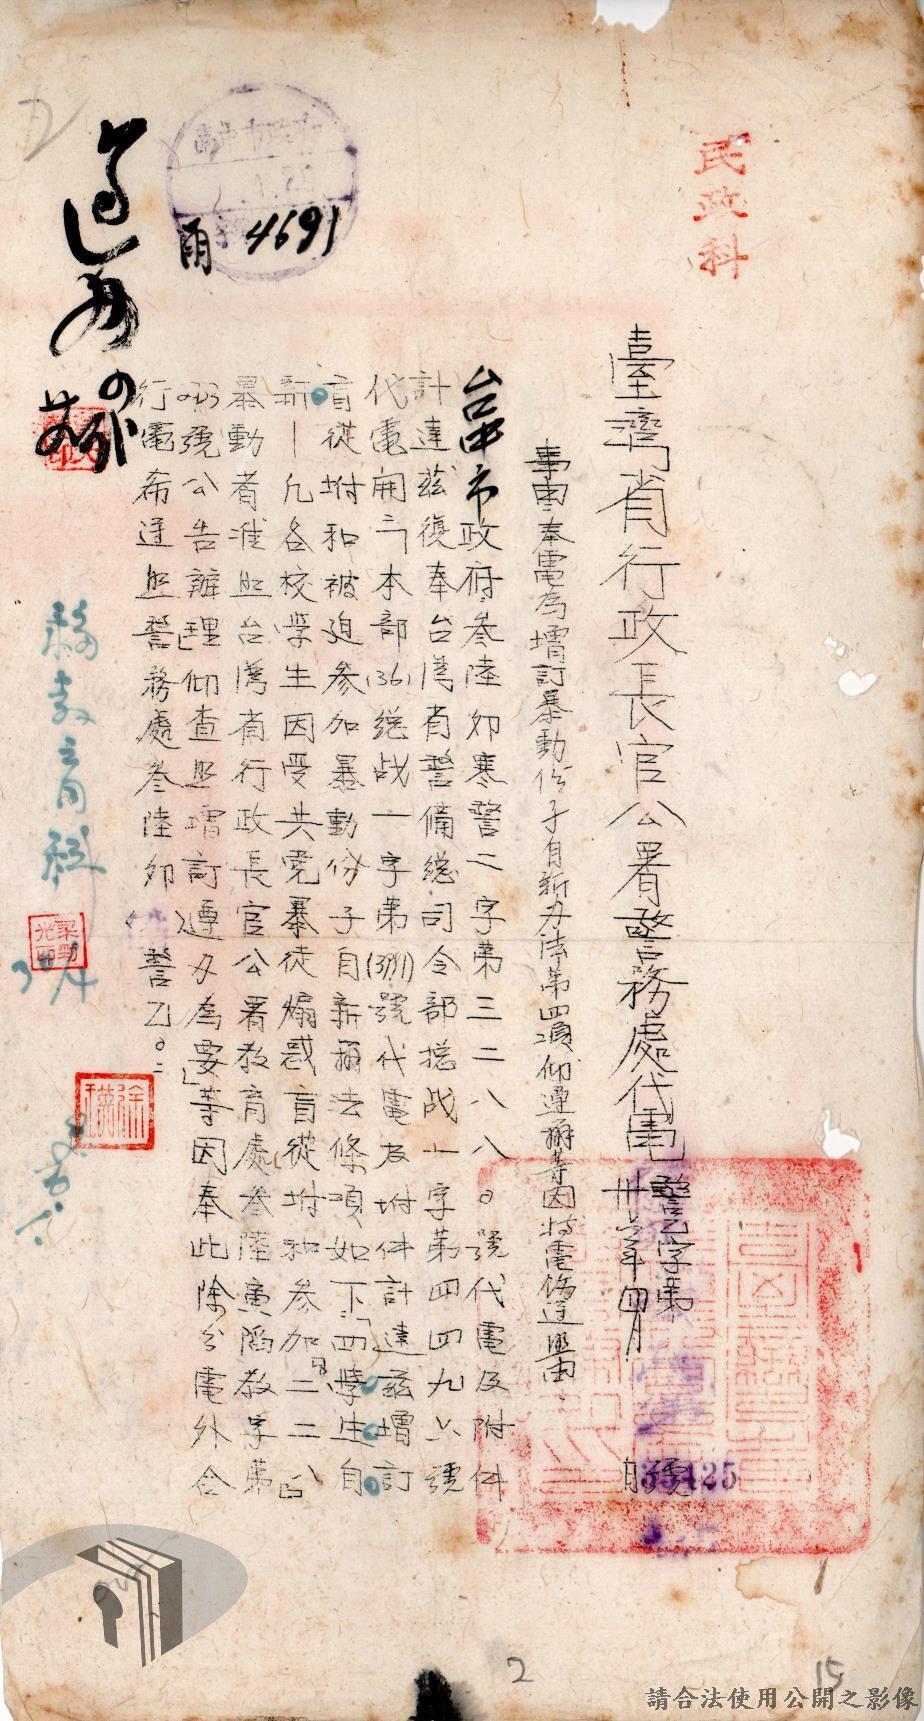 民政科
臺灣省行政長官公署警務處代電
警乙字第 號
卅六年四月 日
35425
事由奉電為增訂暴動份子自新办法第四項仰遵辦等因特電飭遵照由
台中市政府叁陸卯寒警二字第三二八八〇號代電及附件
計達茲復奉台灣省警備總司令部總战一字第四四九六號
代電開「本部(36)總战一字第(3381)號代電及坿件計達茲增訂
盲從坿和被迫參加暴動份子自新辦法條項如下「四學生自
新—凡各校學生因受共党暴徒煽惑盲從坿和參加二二八
暴動者准照台灣省行政長官公署教育處叁陸寅陷教字第
號公告辦理」仰查照增訂遵办為要」等因奉此除分電外合
行電希遵照警務處叁陸卯( )警乙。
4691
移教育科
2
15
請合法使用公開之影像